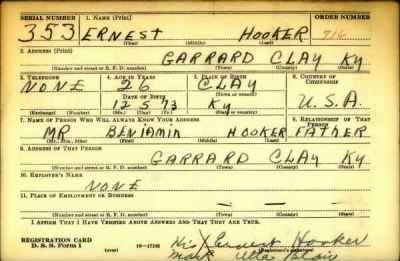 SERIAL NUMBER 1. NAME (Print) ORDER NUMBER
353 ERNEST HOOKER 716
(First) (Middle) (Last)
2. ADDRESS (Print)
GARRARD CLAY KY
(Number and street or R. F. D. number) (Town) (County) (State)
3. TELEPHONE 4. AGE IN YEARS 5. PLACE OF BIRTH 6. COUNTRY OF CITIZENSHIP
NONE 26 CLAY
DATE OF BIRTH (Town or county)
12 5 73 KY U.S.A.
(Exchange) (Number) (Mo.) (Day) (Yr.) (State or country)
7. NAME OF PERSON WHO WILL ALWAYS KNOW YOUR ADDRESS 8. RELATIONSHIP OF THAT PERSON
MR BENJAMIN HOOKER FATHER
(Mr., Mrs., Miss) (First) (Middle) (Last)
9. ADDRESS OF THAT PERSON
GARRARD CLAY KY
(Number and street or R. F. D. number) (Town) (County) (State)
10. EMPLOYER'S NAME
NONE
11. PLACE OF EMPLOYMENT OR BUSINESS
(Number and street or R. F. D. number) (Town) (County) (State)
I AFFIRM THAT I HAVE VERIFIED ABOVE ANSWERS AND THAT THEY ARE TRUE.
REGISTRATION CARD
D. S. S. Form 1
His X Ernest Hooker
Mark Blair
(Registrant's signature)